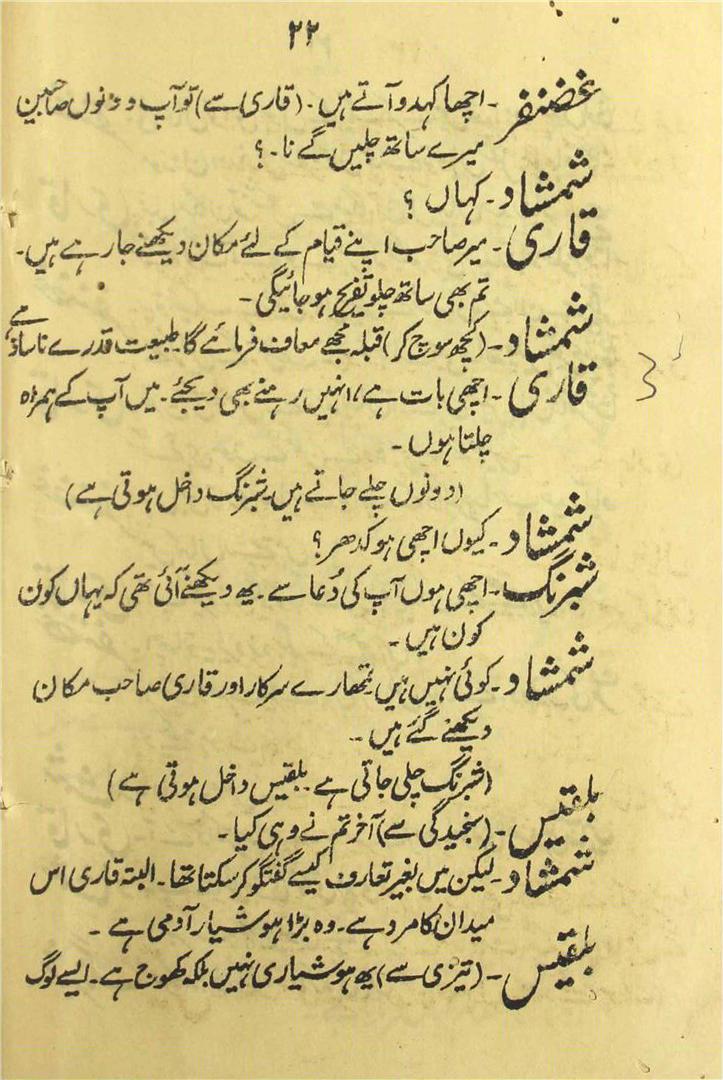 ۲۲
غضنفر ۔ اچھا کہدو آتے ہیں ۔ (قاری سے) تو آپ دونوں صاحبین
میرے ساتھ چلیں گے نا ۔ ؟
شمشاد ۔ کہاں ؟
قاری ۔ میر صاحب اپنے قیام کے لئے مکان دیکھنے جا رہے ہیں ۔
تم بھی ساتھ چلو تفریح ہو جائیگی ۔
شمشاد ۔ (کچھ سوچ کر) قبلہ مجھے معاف فرمائے گا ۔ طبیعت قدرے ناساز ہے
قاری ۔ اچھی بات ہے، انہیں رہنے بھی دیجئے ۔ میں آپ کے ہمراہ
چلتا ہوں ۔
(دونوں چلے جاتے ہیں ۔ شبرنگ داخل ہوتی ہے)
شمشاد ۔ کیوں اچھی ہو کدھر ؟
شبرنگ ۔ اچھی ہوں آپ کی دُعا سے ۔ یہ دیکھنے آئی تھی کہ یہاں کون
کون ہیں ۔
شمشاد ۔ کوئی نہیں ہیں تمھارے سرکار اور قاری صاحب مکان
دیکھنے گئے ہیں ۔
(شبرنگ چلی جاتی ہے ۔ بلقیس داخل ہوتی ہے)
بلقیس ۔ (سنجیدگی سے) آخر تم نے وہی کیا ۔
شمشاد ۔ لیکن میں بغیر تعارف کیسے گفتگو کر سکتا تھا ۔ البتہ قاری اس
میدان کا مرد ہے ۔ وہ بڑا ہوشیار آدمی ہے ۔
بلقیس ۔ (تیزی سے) یہ ہوشیاری نہیں بلکہ کھوج ہے ۔ ایسے لوگ